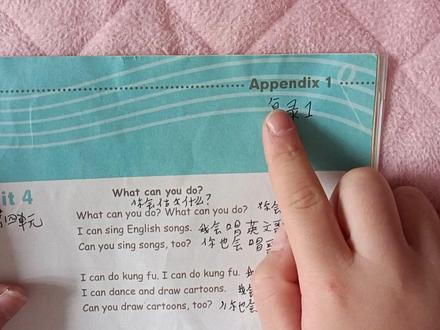 Appendix 1
录1
it 4
What can you do?
你会 什么?
What can you do? What can you do? 你会
四单元
I can sing English songs. 我会唱英文
Can you sing songs, too? 你也会唱
I can do kung fu. I can do kung fu.
I can dance and draw cartoons. 我会
Can you draw cartoons, too? 你也会